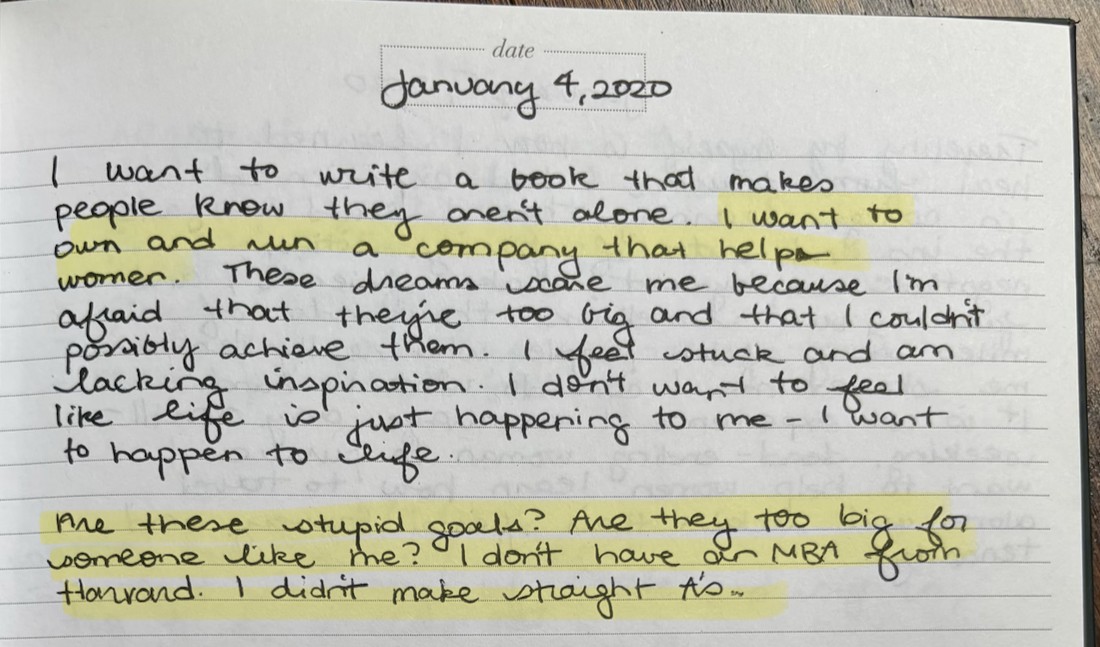 date
January 4, 2020
I want to write a book that makes
people know they aren't alone. I want to
own and run a company that helps
women. These dreams scare me because I'm
afraid that they're too big and that I couldn't
possibly achieve them. I feel stuck and am
lacking inspiration. I don't want to feel
like life is just happening to me - I want
to happen to life.
Are these stupid goals? Are they too big for
someone like me? I don't have an MBA from
Harvard. I didn't make straight A's...